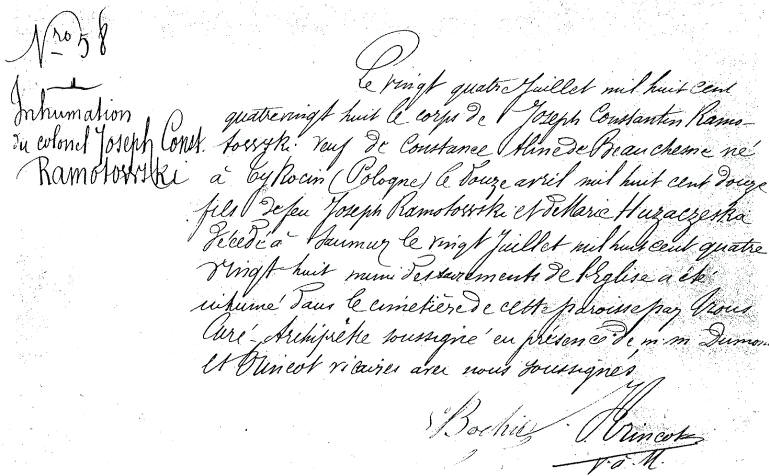 Nro 58
Inhumation
du colonel Joseph Const.
Ramotowski
Le vingt quatre Juillet mil huit cent
quatrevingt huit le corps de Joseph Constantin Ramo-
towski veuf de Constance Aline de Beauchesne né
à Tykocin (Pologne) le douze avril mil huit cent douze
fils de feu Joseph Ramotowski et de Marie
décédé à Saumur le vingt Juillet mil huit cent quatre
vingt huit muni des sacrements de l'Eglise a été
inhumé dans le cimetière de cette paroisse par Nous
Curé-Archiprêtre soussigné en présence de m.m Dumon
et vicaires avec nous soussignés